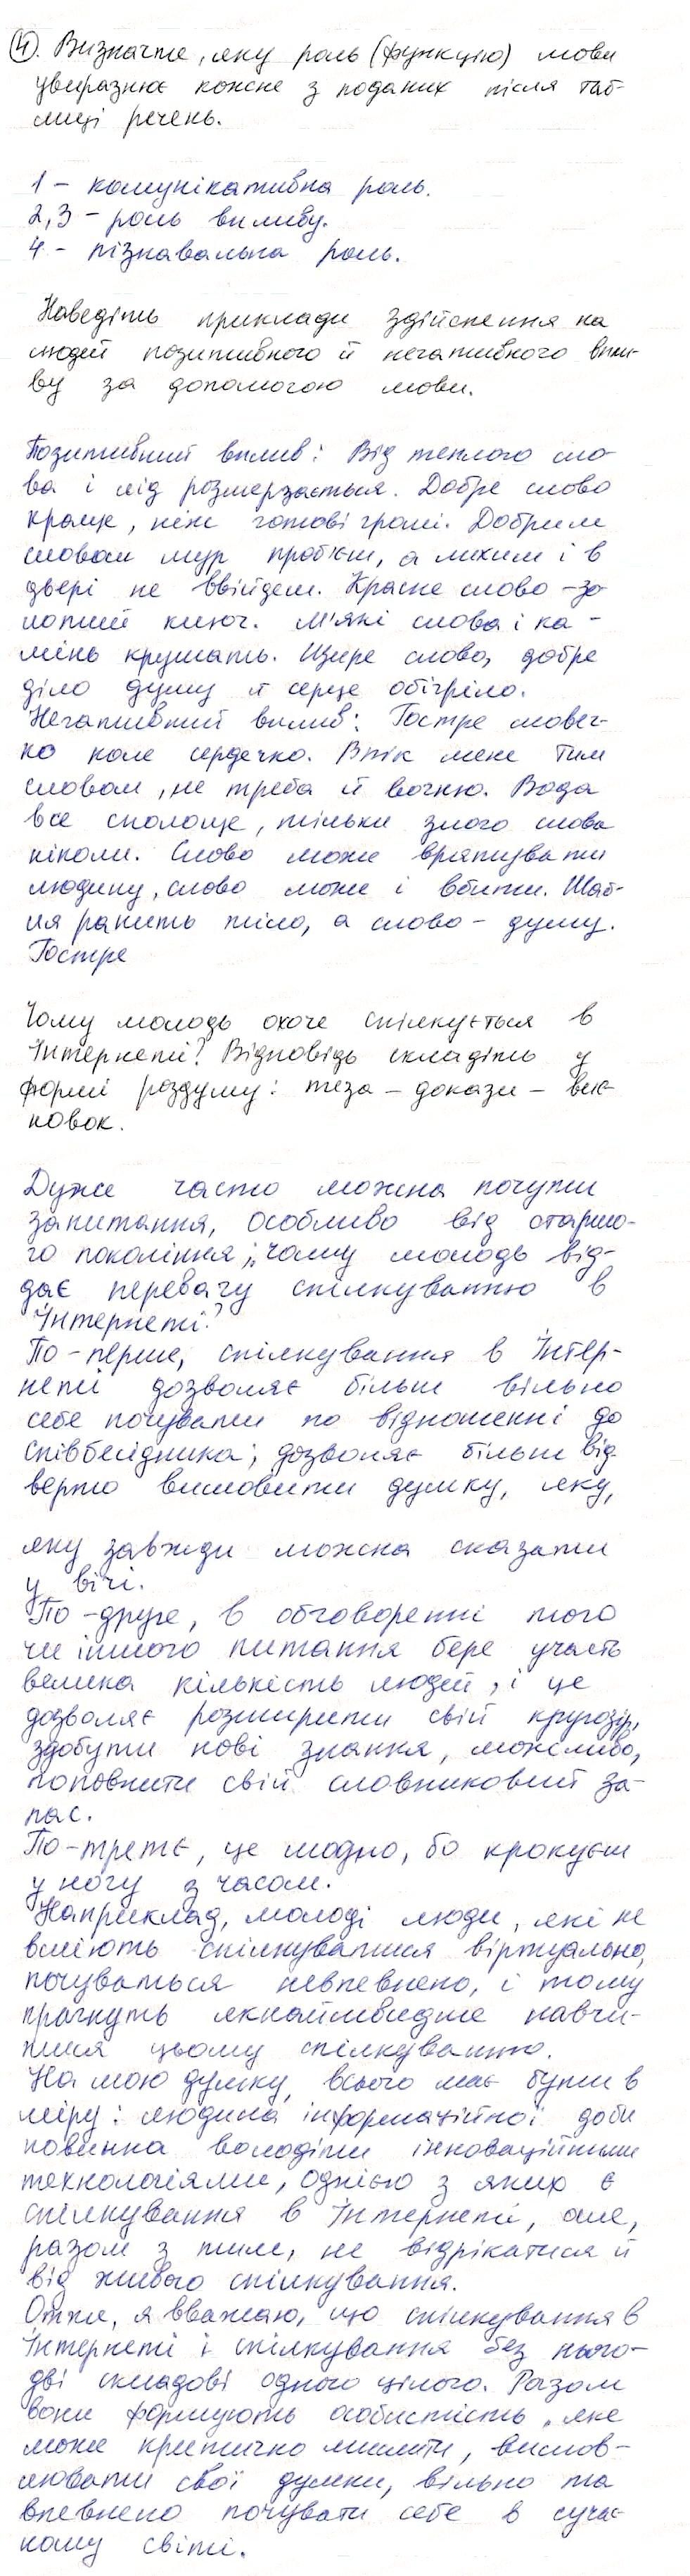 4. Визначте, яку роль (функцію) мови
увиразнює кожне з поданих після таб-
лиці речень.
1 - комунікативна роль.
2,3 - роль впливу.
4 - пізнавальна роль.
Наведіть приклади здійснення на
людей позитивного й негативного впли-
ву за допомогою мови.
Позитивний вплив: Від теплого сло-
ва і лід розмерзається. Добре слово
краще, ніж готові гроші. Добрим
словом мур проб'єш, а лихим і в
двері не ввійдеш. Красне слово - зо-
лотий ключ. М'які слова і ка-
мінь крушать. Щире слово, добре
діло душу й серце обігріло.
Негативний вплив: Гостре словеч-
ко коле сердечко. Впік мене тим
словом, не треба й вогню. Вода
все сполоще, тільки злого слова
ніколи. Слово може врятувати
людину, слово може і вбити. Шаб-
ля ранить тіло, а слово - душу.
Гостре
Чому молодь охоче спілкується в
Інтернеті? Відповідь складіть у
формі роздуму: теза - докази - вис-
новок.
Дуже часто можна почути
запитання, особливо від старшо-
го покоління: „Чому молодь від-
дає перевагу спілкуванню в
Інтернеті?
По-перше, спілкування в Інтер-
неті дозволяє більш вільно
себе почувати по відношенні до
співбесідника, дозволяє більш від-
верто висловити думку, яку,
яку завжди можна сказати
у вічі.
По-друге, в обговоренні того
чи іншого питання бере участь
велика кількість людей, і це
дозволяє розширити свій кругозір,
здобути нові знання, можливо,
поповнити свій словниковий за-
пас.
По-третє, це модно, бо крокуєш
у ногу з часом.
Наприклад, молоді люди, які не
вміють спілкуватися віртуально,
почуваться невпевнено, і тому
прагнуть якнайшвидше навчи-
тися цьому спілкуванню.
На мою думку, всього має бути в
міру: людина інформаційної доби
повинна володіти інноваційними
технологіями, однією з яких є
спілкування в Інтернеті, але,
разом з тим, не відрікатися й
від живого спілкування.
Отже, я вважаю, що спілкування в
Інтернеті і спілкування без нього-
дві складові одного цілого. Разом
вони формують особистість, яке
може критично мислити, вислов-
лювати свої думки, вільно та
впевнено почувати себе в сучас-
ному світі.